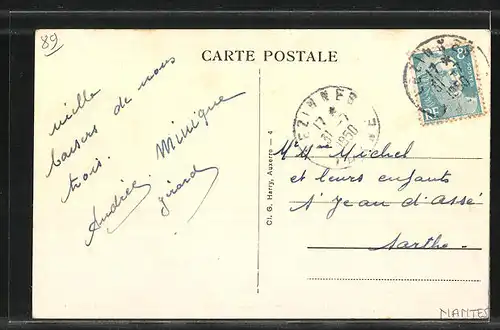 89
CARTE POSTALE
mille
baisers de nous
trois.
Andrée Minique
Girard
Cl. G. Harry, Auxerre - 4
EZINNES
17 *
31 -7
1950
Mr Mme Michel
et leurs enfants
St Jean d'Assé
Sarthe
NANTES